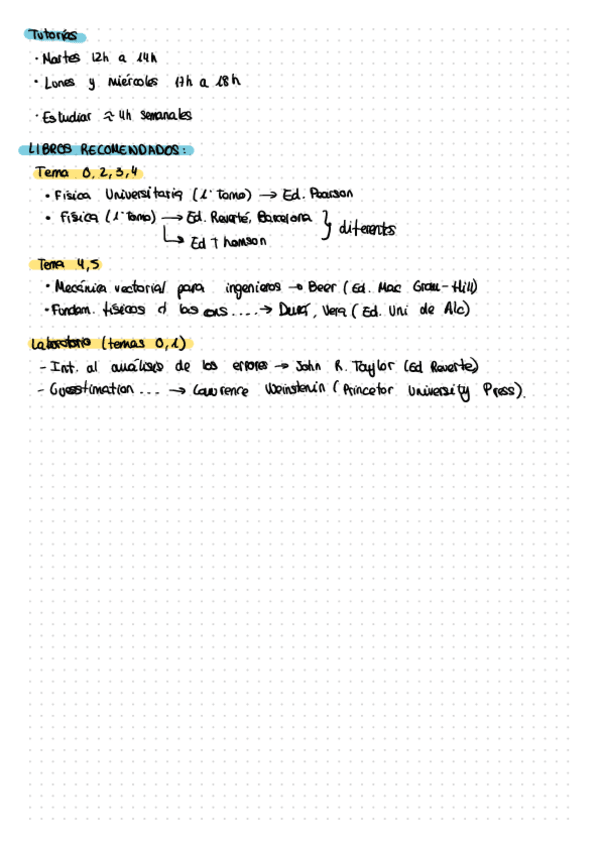 Tutorías
· Martes 12h a 14h
· Lunes y miércoles 17h a 18h
· Estudiar ≈ 4h semanales
LIBROS RECOMENDADOS:
Tema 0, 2, 3, 4
· Física Universitaria (1º Tomo) → Ed. Pearson
· Física (1º Tomo) → Ed. Reverté, Barcelona
↳ Ed Thomson } diferents
Tema 4,5
· Mecánica vectorial para ingenieros → Beer (Ed. Mac Graw-Hill)
· Fundam. físicos d las .... → Durá, Vera (Ed. Uni de Alc)
Laboratorio (temas 0,1)
- Int. al análisis de los errores → John R. Taylor (Ed Reverte)
- Guesstimation ... → Lawrence Weinstenin (Princetor University Press).